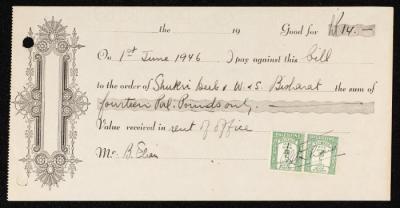 the 19 Good for £P 14.—
On 1st June 1946 I pay against this bill
to the order of Shukri Deeb & W. & S. Bisharat the sum of
fourteen Pal. Pounds only.—
Value received in rent of office
Mr. B. Elias